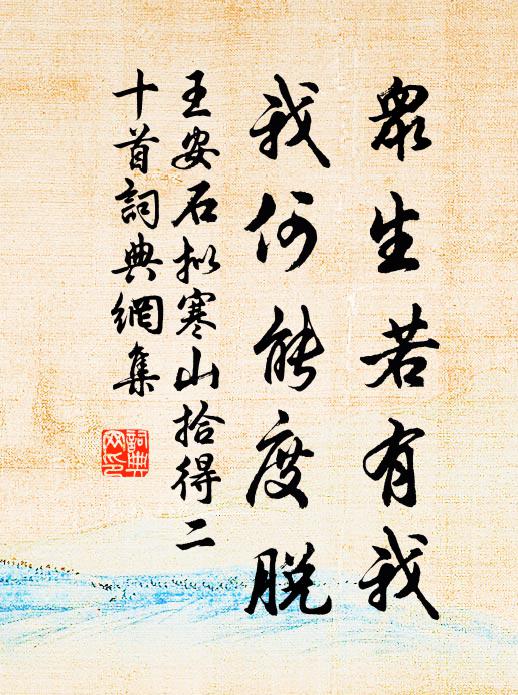 眾生若有我
我何能度脫
王安石拟寒山拾得二
十首詞典網集
詞典
网印